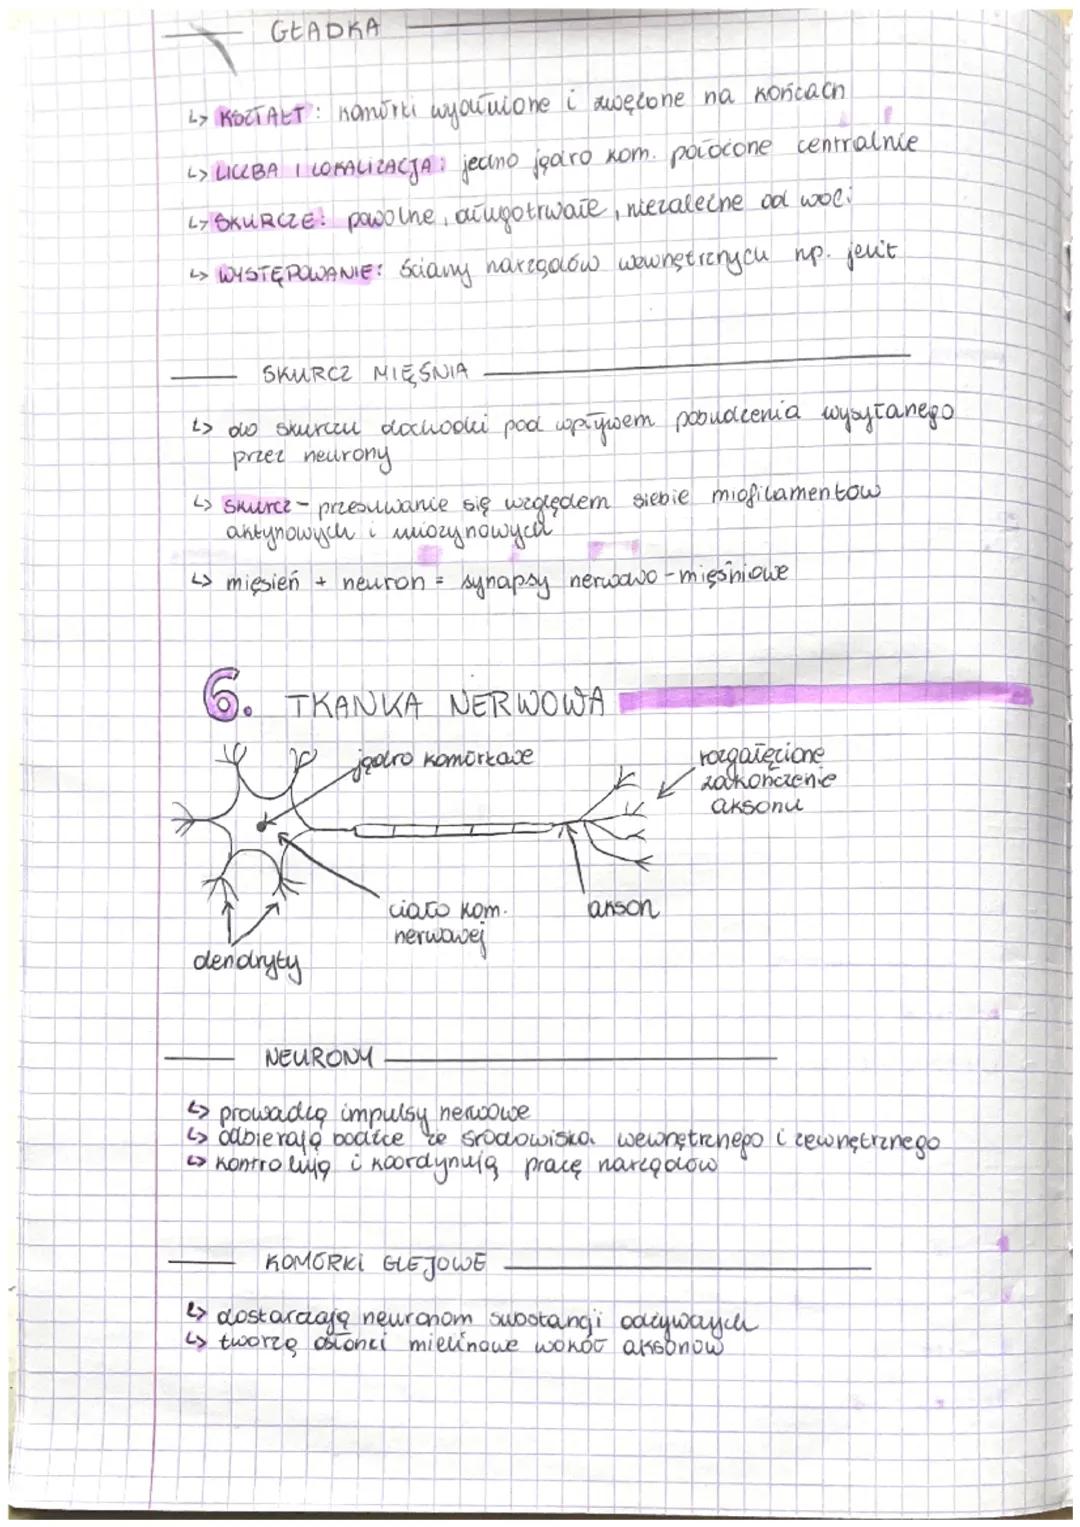 GŁADKA
↳ KSZTAŁT: komórki wydłużone i zwężone na końcach
↳ LICZBA I LOKALIZACJA: jedno jądro kom. położone centralnie
↳ SKURCZE: powolne, długotrwałe, niezależne od woli
↳ WYSTĘPOWANIE: ściany narządów wewnętrznych np. jelit
SKURCZ MIĘŚNIA
↳ do skurczu dochodzi pod wpływem pobudzenia wysyłanego
przez neurony
↳ skurcz - przesuwanie się względem siebie miofilamentów
aktynowych i miozynowych
↳ mięsień + neuron = synapsy nerwowo-mięśniowe
6. TKANKA NERWOWA
jądro komórkowe
rozgałęzione
zakończenie
aksonu
ciało kom.
nerwowej
akson
dendryty
NEURONY
↳ prowadzą impulsy nerwowe
↳ odbierają bodźce ze środowiska wewnętrznego i zewnętrznego
↳ kontrolują i koordynują pracę narządów
KOMÓRKI GLEJOWE
↳ dostarczają neuronom substancji odżywczych
↳ tworzą osłonki mielinowe wokół aksonów